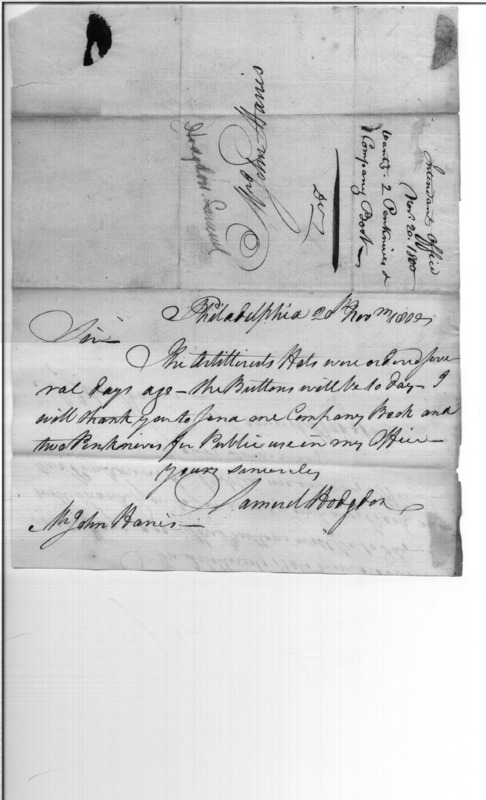 Intendants Office
Nov. 20. 1800
wants. 2 Penknives &
1 Company Book
Mr John Harris
Hodgdon, Samuel
Philadelphia 20th Novm 1800
Sir
The Artillerists Hats were ordered seve
ral days ago – the Buttons will be to day – I
will thank you to send one Company Book and
two Penknives for Public use in my Office –
yours sincerely
Samuel Hodgdon
Mr John Harris –